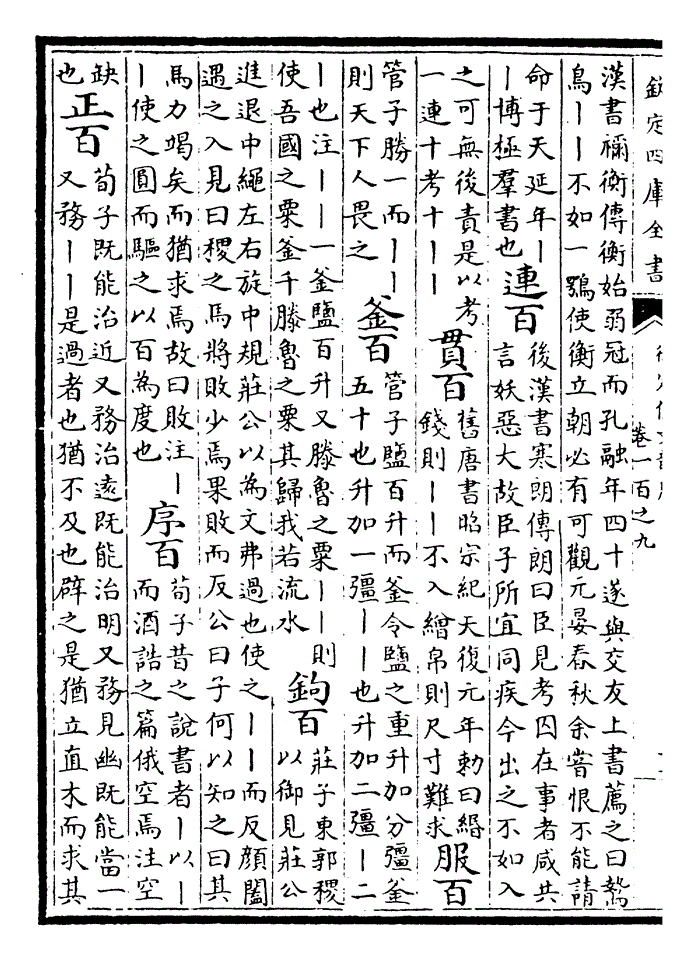 欽定四庫全書
卷一百之九
漢書禰衡傳衡始弱冠而孔融年四十遂與交友上書薦之曰鷙
鳥丨丨不如一鶚使衡立朝必有可觀元晏春秋余嘗恨不能請
命于天延年丨
丨博極羣書也
連百
後漢書寒朗傳朗曰臣見考囚在事者咸共
言妖惡大故臣子所宜同疾今出之不如入
之可無後責是以考
一連十考十丨丨
貫百
舊唐書昭宗紀天復元年勅曰緡
錢則丨丨不入繒帛則尺寸難求
服百
管子勝一而丨丨
則天下人畏之
釜百
管子鹽百升而釜令鹽之重升加分彊釜
五十也升加一彊丨丨也升加二彊丨二
丨也注丨丨一釜鹽百升又滕魯之粟丨丨則
使吾國之粟釜千滕魯之粟其歸我若流水
鉤百
莊子東郭稷
以御見莊公
進退中繩左右旋中規莊公以為文弗過也使之丨丨而反顔闔
遇之入見曰稷之馬將敗少焉果敗而反公曰子何以知之曰其
馬力竭矣而猶求焉故曰敗注丨
丨使之圓而驅之以百為度也
序百
荀子昔之說書者丨以丨
而酒誥之篇俄空焉注空
缺
也
正百
荀子既能治近又務治遠既能治明又務見幽既能當一
又務丨丨是過者也猶不及也辟之是猶立直木而求其